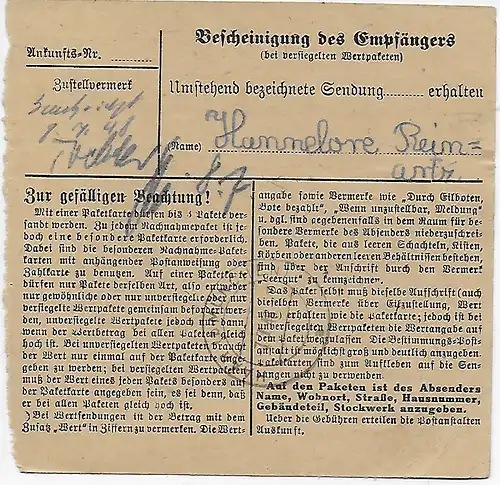 Ankunfts=Nr.
Zustellvermerk
Bescheinigung des Empfängers
(bei versiegelten Wertpaketen)
Umstehend bezeichnete Sendung......... erhalten
(Name) Hannelore Rein=
artz
Zur gefälligen Beachtung!
Mit einer Paketkarte dürfen bis 3 Pakete ver=
sandt werden. Zu jedem Nachnahmepaket ist je=
doch eine besondere Paketkarte erforderlich.
Dabei sind die besonderen Nachnahme=Paket=
karten mit anhängender Postanweisung oder
Zahlkarte zu benutzen. Auf einer Paketkarte
dürfen nur Pakete derselben Art, also entweder
nur gewöhnliche oder nur unversiegelte oder nur
versiegelte Wertpakete gemeinsam befördert wer=
den, unversiegelte Wertpakete jedoch nur dann,
wenn der Wertbetrag bei allen Paketen gleich
hoch ist. Bei unversiegelten Wertpaketen braucht
der Wert nur einmal auf der Paketkarte ange=
geben zu werden; bei versiegelten Wertpaketen
muß der Wert eines jeden Pakets besonders auf
der Paketkarte angegeben sein, es sei denn, daß
er bei allen Paketen gleich hoch ist.
Bei Wertsendungen ist der Betrag mit dem
Zusatz „Wert" in Ziffern zu vermerken. Die Wert=
angabe sowie Vermerke wie „Durch Eilboten,
Bote bezahlt", „Wenn unzustellbar, Meldung"
u. dgl. sind gegebenenfalls in dem Raum für be=
sondere Vermerke des Absenders niederzuschrei=
ben. Pakete, die aus leeren Schachteln, Kisten,
Körben oder anderen leeren Behältnissen bestehen,
sind über der Anschrift durch den Vermerk
„Leergut" zu kennzeichnen.
Das Paket selbst muß dieselbe Aufschrift (auch
dieselben Vermerke über Eilzustellung, Wert
usw.) erhalten wie die Paketkarte; jedoch ist bei
unversiegelten Wertpaketen die Wertangabe auf
dem Paket wegzulassen. Die Bestimmungs=Post=
anstalt ist möglichst groß und deutlich anzugeben.
Paketkarten sind zum Aufkleben auf die Sen=
dungen nicht zu verwenden.
Auf den Paketen ist des Absenders
Name, Wohnort, Straße, Hausnummer,
Gebäudeteil, Stockwerk anzugeben.
Ueber die Gebühren erteilen die Postanstalten
Auskunft.